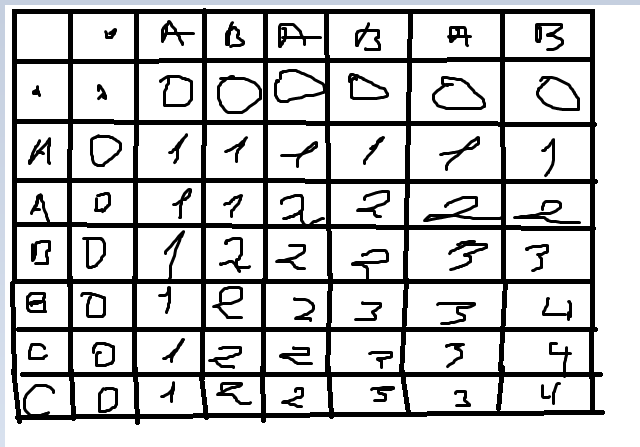 . A B A B A B
. . 0 0 0 0 0 0
A 0 1 1 1 1 1 1
A 0 1 1 2 2 2 2
B 0 1 2 2 3 3 3
B 0 1 2 2 3 3 4
C 0 1 2 2 3 3 4
C 0 1 2 2 3 3 4